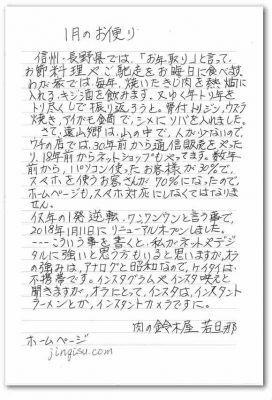 1月のお便り
信州・長野県では、「お年取り」と言って、
お節料理やご馳走をお晦日に食べ
わが家では、毎年、焼いたきじ肉を熱燗に
入れる、キジ酒を飲みます。又ゆく年トリ年を
トリ尽くしで振り返ろうと。骨付トリジン、ウズラ
焼き、アイガモ、シメにソバを入れました。
さて、遠山郷は、山の中で、人が少ないので、
ワケの店では、30年前から通信販売をやった
り、18年前からネットショップもやってます。数年
前から、パソコン使ったお客様が30%で、
スマホを使うお客さんが70%になったので、
ホームページも、スマホ対応にしなくてはなりま
せん。
伏年の1発逆転、ワンワンワンと言う事で、
2018年1月11日にリニューアルオープンしました。
---こういう事を書くと、私がネットやデジ
タルに強いと思う方もいると思いますが、オラ
の強みは、アナログと昭和なので、ケイタイは、
不携帯です。インスタグラムやインスタ映えと
聞きますが、オラにとって、インスタは、インスタント
ラーメンとか、インスタントカメラですに。
肉の鈴木屋 若旦那
ホームページ
jingisu.com/